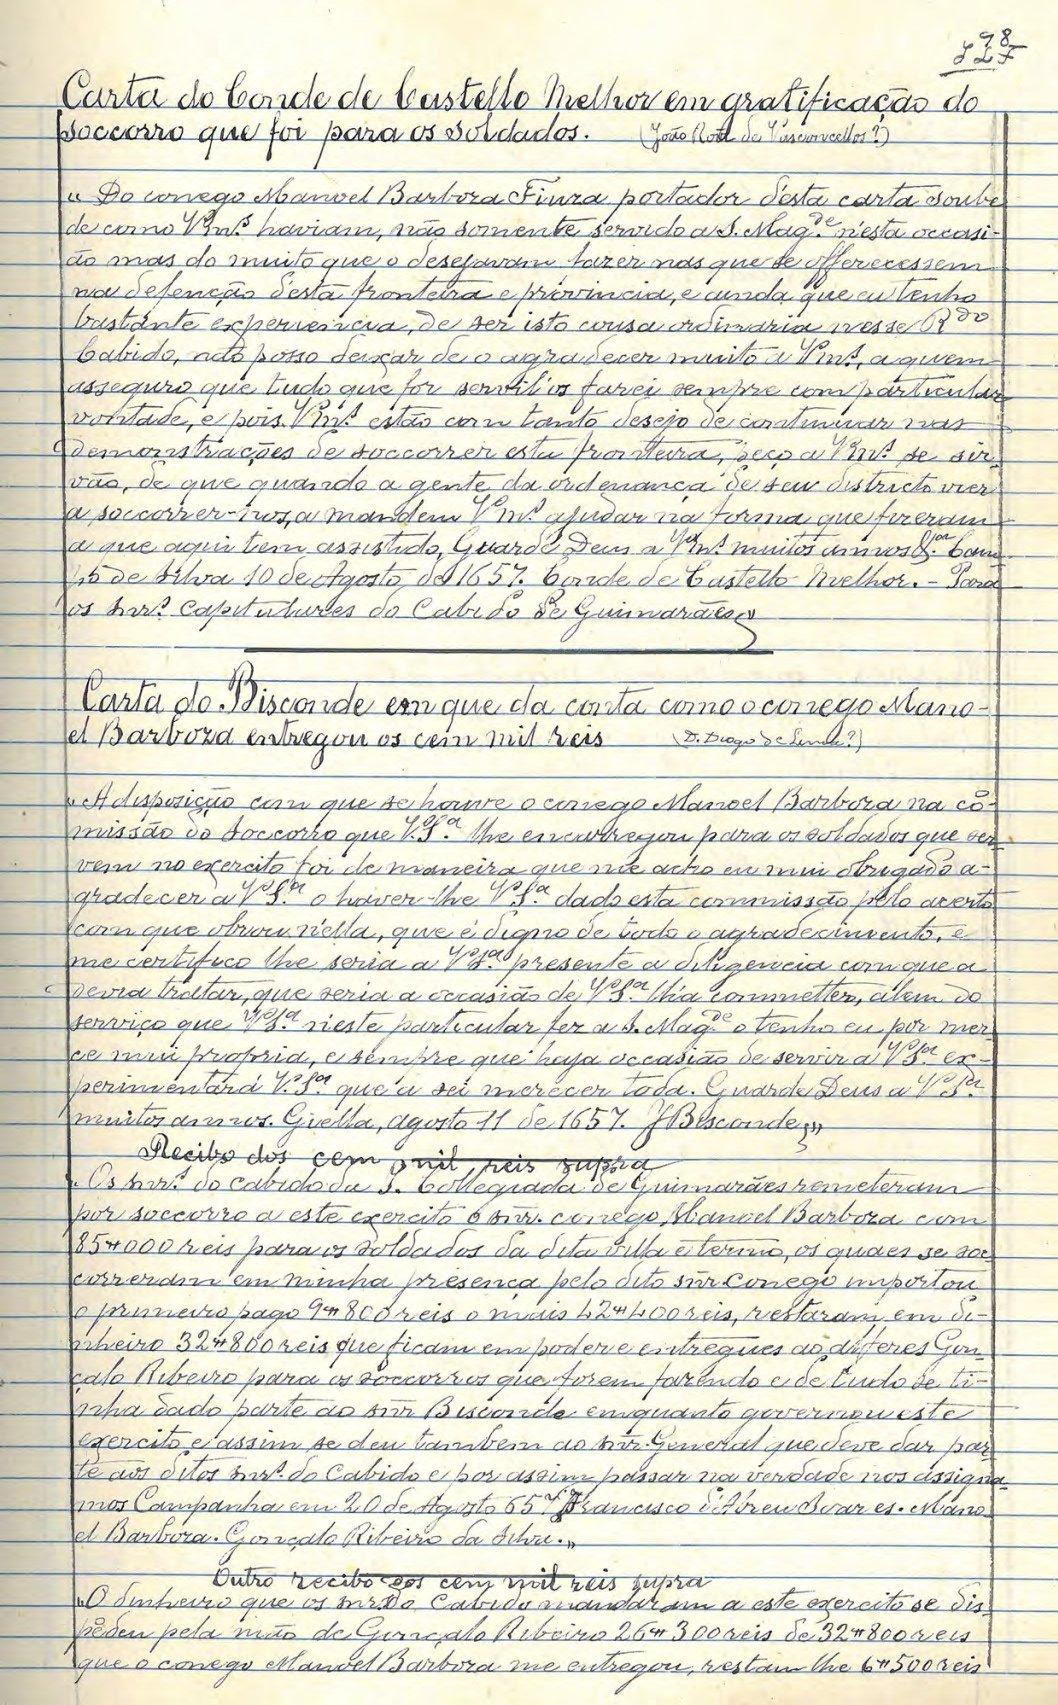 98
Carta do Conde de Castello Melhor em gratificação do
soccorro que foi para os soldados. (João Roiz de Vasconcellos?)
"Do conego Manoel Barboza Fiuza portador d'esta carta soube
de como V.ᵐˢ haviam, não somente servido a S. Mag.ᵈᵉ n'esta occasi-
ão mas do muito que o desejavam fazer nas que se offerecessem
na defenção d'esta fronteira e provincia, e ainda que eu tenho
bastante experiencia, de ser isto cousa ordinaria nesse R.ᵈᵒ
Cabido, não posso deixar de o agradecer muito a V.ᵐˢ, a quem
asseguro que tudo que for servil'os farei sempre com particular
vontade, e pois V.ᵐˢ estão com tanto desejo de continuar nas
demonstrações de soccorrer esta fronteira, peço a V.ᵐˢ se sir-
vão, de que quando a gente da ordenança de seu districto vier
a soccorrer-nos, a mandem V.ᵐˢ ajudar na forma que fizeram
a que aqui tem assistido, Guarde Deus a V.ᵐˢ muitos annos &.ª Cam-
po de Silva 10 de Agosto de 1657. Conde de Castello-Melhor. - Para
os snr.ˢ capitulares do Cabido de Guimarães,,
Carta do Bisconde em que da conta como o conego Mano-
el Barboza entregou os cem mil reis (D. Diogo de Lima?)
"A disposição com que se houve o conego Manoel Barboza na cõ-
missão do soccorro que V. S.ª lhe encarregou para os soldados que ser-
vem no exercito foi de maneira que me acho eu mui obrigado a-
gradecer a V. S.ª o haver-lhe V. S.ª dado esta commissão pelo acerto
com que obrou n'ella, que é digno de todo o agradecimento, e
me certifico lhe seria a V. S.ª presente a diligencia com que a
devia tratar, que seria a occasião de V. S.ª lh'a commetter, alem do
serviço que V. S.ª n'este particular fez a S. Mag.ᵈᵉ o tenho eu por mer-
ce mui propria, e sempre que haja occasião de servir a V. S.ª ex-
perimentará V. S.ª que a sei merecer toda. Guarde Deus a V. S.ª
muitos annos. Giella, agosto 11 de 1657. Bisconde,,
Recibo dos cem mil reis supra
"Os snr.ˢ do cabido da I. Collegiada de Guimarães remeteram
por soccorro a este exercito o snr. conego Manoel Barboza com
85#000 reis para os soldados da dita villa e termo, os quaes se soc-
correram em minha presença pelo dito snr conego importou
o primeiro pago 9#800 reis o mais 42#400 reis, restaram em di-
nheiro 32#800 reis que ficam em poder e entregues ao alferes Gon-
çalo Ribeiro para os soccorros que forem fazendo e de tudo se ti-
nha dado parte ao snr Bisconde emquanto governou este
exercito e assim se deu tambem ao snr. General que deve dar par-
te aos ditos snr.ˢ do Cabido e por assim passar na verdade nos assigna-
mos Campanha em 20 de Agosto 657 Francisco d'Abreu Soares. Mano-
el Barboza. Gonçalo Ribeiro da Silva.,,
Outro recibo dos cem mil reis supra
"O dinheiro que os snr.ˢ do Cabido mandaram a este exercito se dis-
pêdeu pela mão de Gonçalo Ribeiro 26#300 reis de 32#800 reis
que o conego Manoel Barboza me entregou, restam lhe 6#500 reis